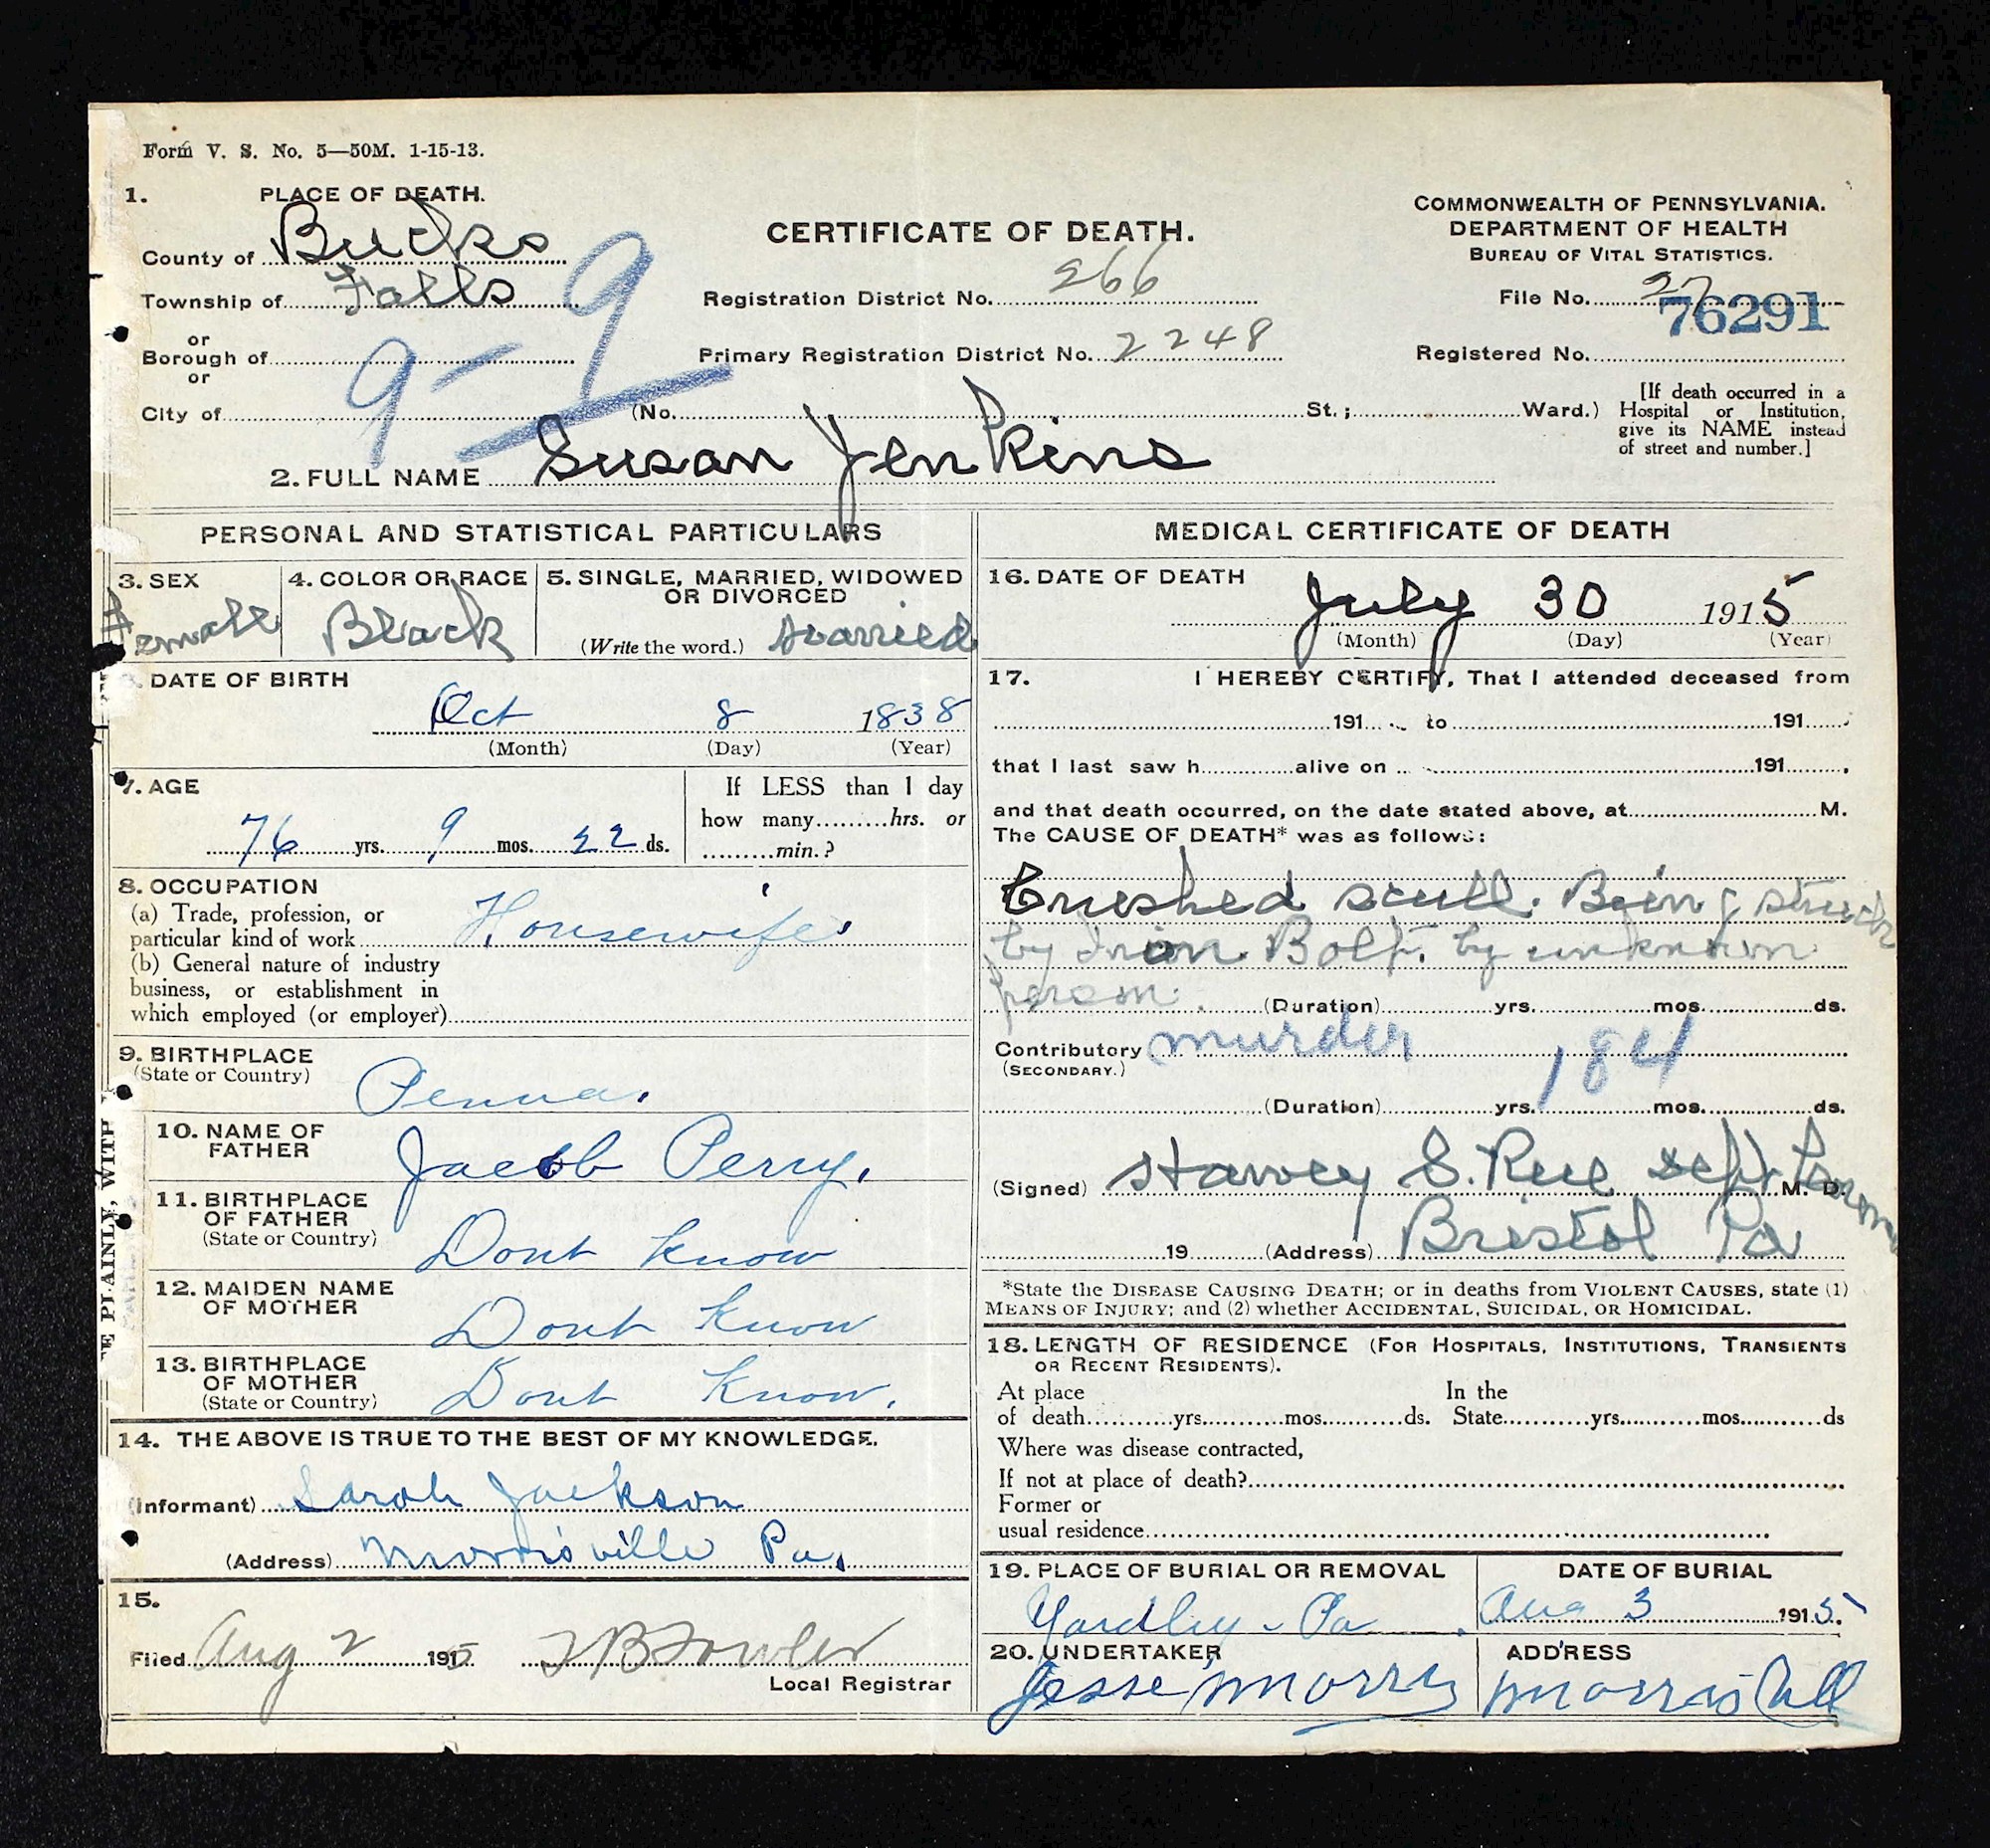 Form V. S. No. 5—50M. 1-15-13.
1. PLACE OF DEATH.
County of Bucks
Township of Falls
or
Borough of
or
City of (No. St.; Ward.)
9-9
CERTIFICATE OF DEATH.
Registration District No. 266
Primary Registration District No. 2248
COMMONWEALTH OF PENNSYLVANIA.
DEPARTMENT OF HEALTH
BUREAU OF VITAL STATISTICS.
File No. 27
76291
Registered No.
[If death occurred in a
Hospital or Institution,
give its NAME instead
of street and number.]
2. FULL NAME Susan Jenkins
PERSONAL AND STATISTICAL PARTICULARS
3. SEX
Female
4. COLOR OR RACE
Black
5. SINGLE, MARRIED, WIDOWED
OR DIVORCED
(Write the word.) Married
DATE OF BIRTH
Oct 8 1838
(Month) (Day) (Year)
7. AGE
76 yrs. 9 mos. 22 ds.
If LESS than 1 day
how many hrs. or
min.?
8. OCCUPATION
(a) Trade, profession, or
particular kind of work Housewife
(b) General nature of industry
business, or establishment in
which employed (or employer)
9. BIRTHPLACE
(State or Country)
Penna.
10. NAME OF
FATHER
Jacob Perry.
11. BIRTHPLACE
OF FATHER
(State or Country)
Dont know
12. MAIDEN NAME
OF MOTHER
Dont Know
13. BIRTHPLACE
OF MOTHER
(State or Country)
Dont Know.
14. THE ABOVE IS TRUE TO THE BEST OF MY KNOWLEDGE.
(Informant) Sarah Jackson
(Address) Morrisville Pa.
15.
Filed Aug 2 1915 Fowler
Local Registrar
E PLAINLY, WITH
MEDICAL CERTIFICATE OF DEATH
16. DATE OF DEATH
July 30 1915
(Month) (Day) (Year)
17. I HEREBY CERTIFY, That I attended deceased from
191 to 191
that I last saw h alive on 191
and that death occurred, on the date stated above, at M.
The CAUSE OF DEATH* was as follows:
Crushed scull. Being struck
by Iron Bolt. by unknown
person.
(Duration) yrs. mos. ds.
Contributory murder 184
(SECONDARY.)
(Duration) yrs. mos. ds.
(Signed) Harvey S. Rue M. D.
19 (Address) Bristol Pa
*State the DISEASE CAUSING DEATH; or in deaths from VIOLENT CAUSES, state (1)
MEANS OF INJURY; and (2) whether ACCIDENTAL, SUICIDAL, OR HOMICIDAL.
18. LENGTH OF RESIDENCE (FOR HOSPITALS, INSTITUTIONS, TRANSIENTS
OR RECENT RESIDENTS).
At place
of death yrs. mos. ds.
In the
State yrs. mos. ds
Where was disease contracted,
If not at place of death?
Former or
usual residence
19. PLACE OF BURIAL OR REMOVAL
Yardley - Pa
DATE OF BURIAL
Aug 3 1915.
20. UNDERTAKER
Jesse
ADDRESS